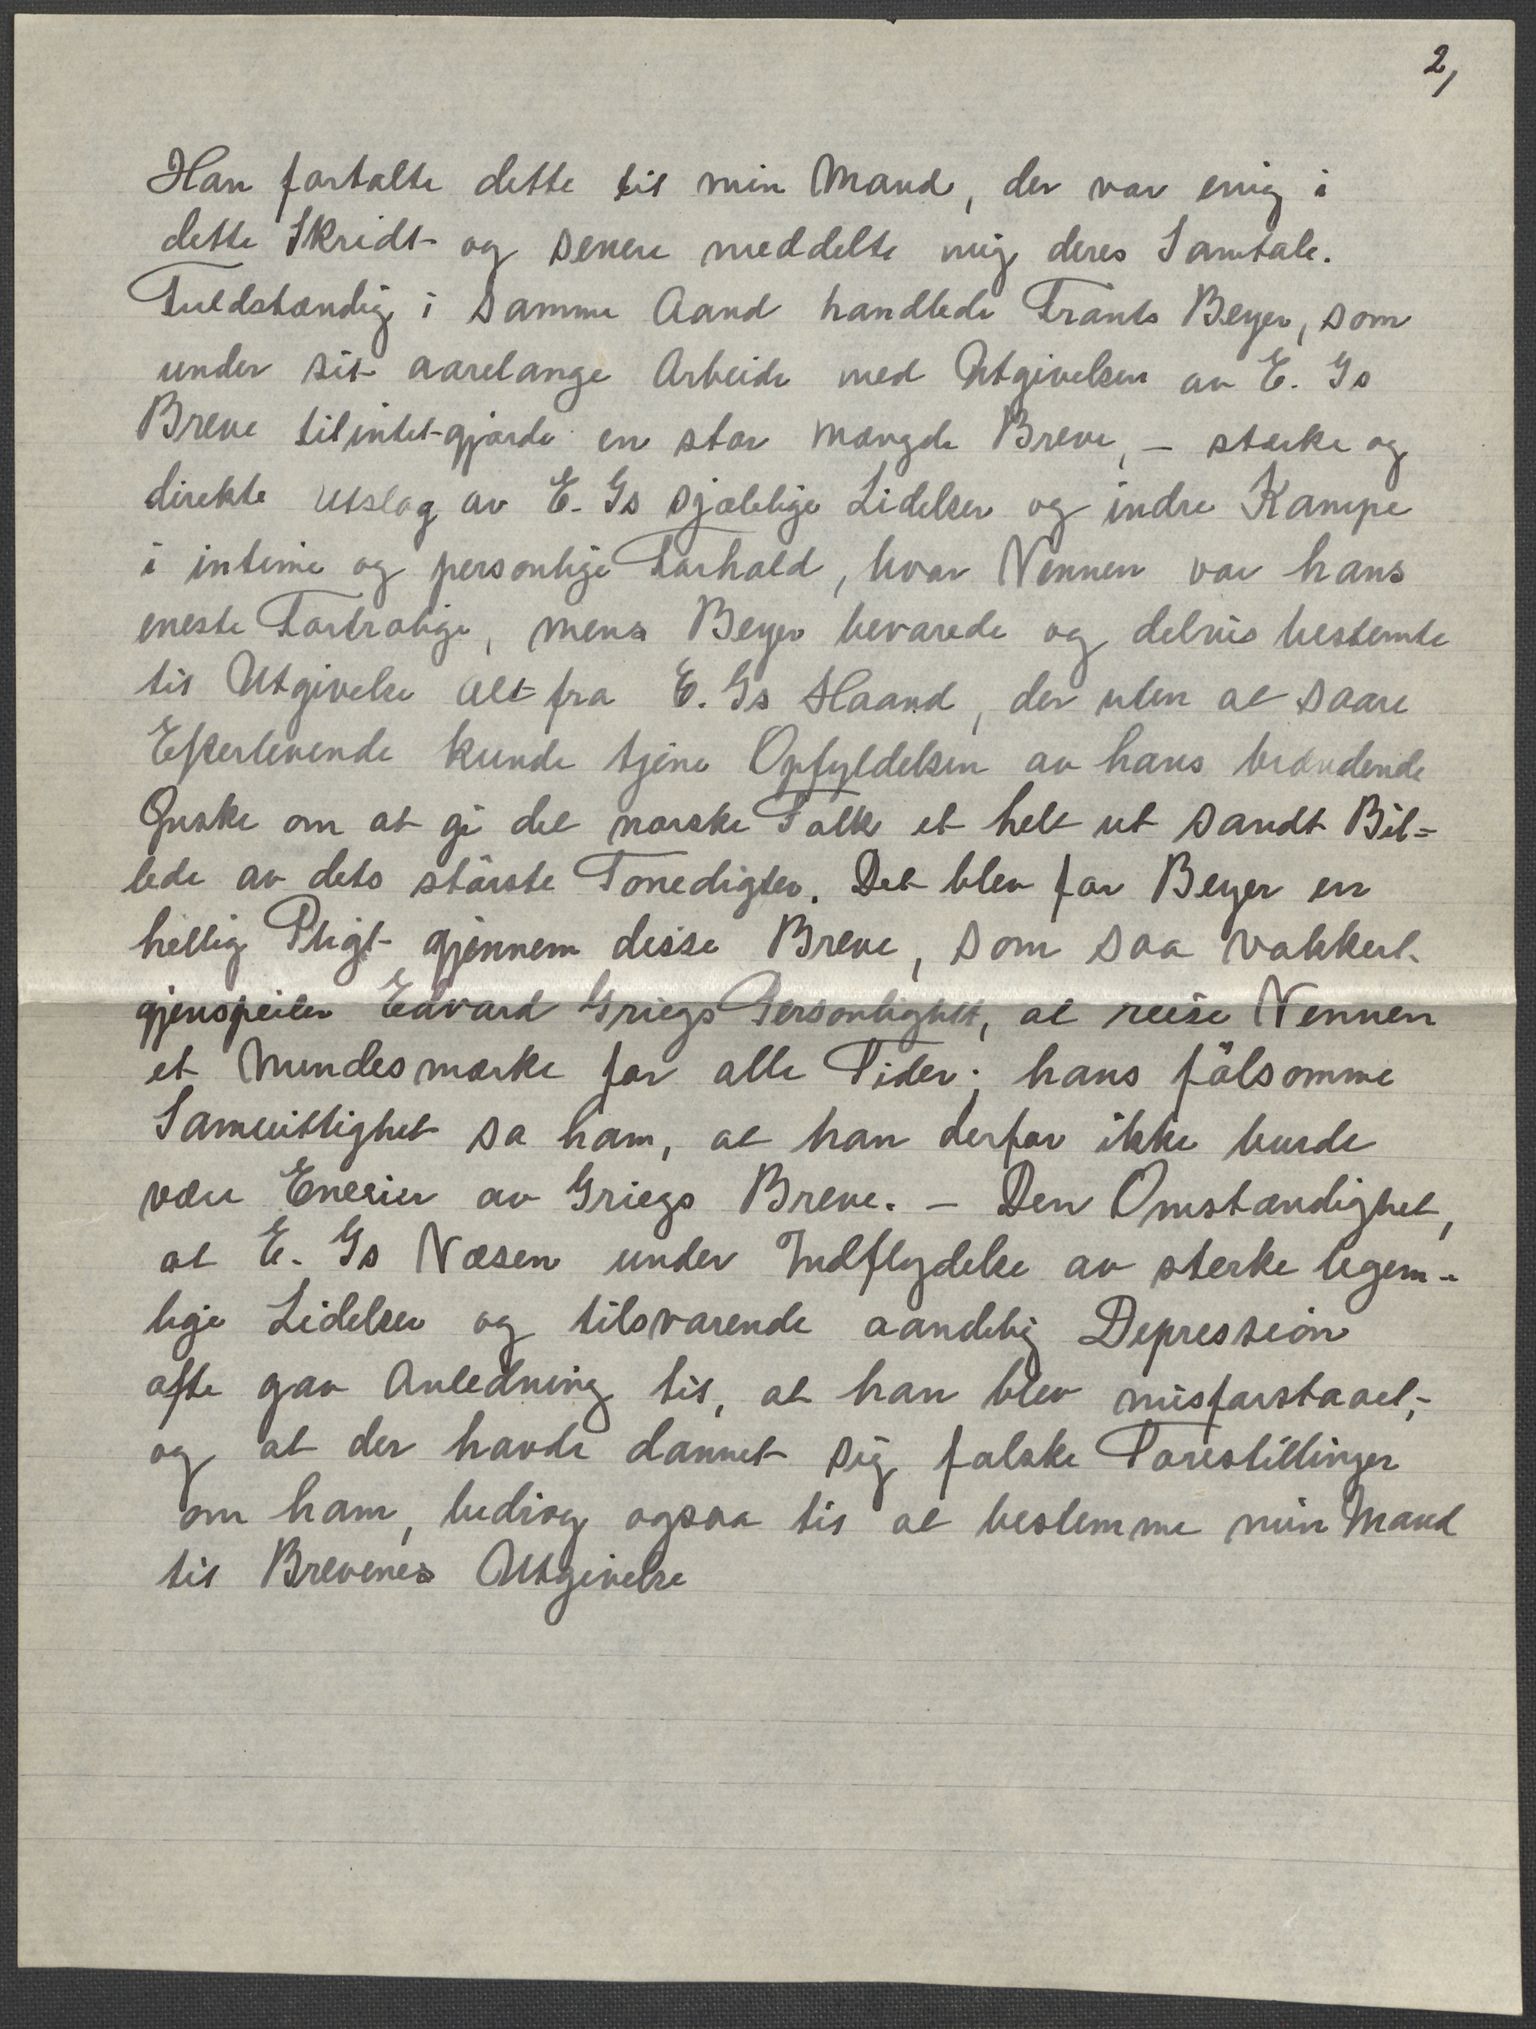 2,
Han fortalte dette til min Mand, der var enig i
dette Skridt og senere meddelte mig deres Samtale.
Fuldstændig i samme Aand handlede Frants Beyer, som
under sit aarelange Arbeide med Utgivelsen av E. Gs
Breve tilintetgjorde en stor Mængde Breve, – stærke og
direkte Utslag av E. Gs sjælelige Lidelser og indre Kampe
i intime og personlige Forhold, hvor Vennen var hans
eneste Fortrolige, mens Beyer bevarede og delvis bestemte
til Utgivelse alt fra E. Gs Haand, der uten at saare
Efterlevende kunde tjene Opfyldelsen av hans brændende
Ønske om at gi det norske Folk et helt ut sandt Bil=
lede av dets störste Tonedigter. Det blev for Beyer en
hellig Pligt gjennem disse Breve, som saa vakkert
gjenspeiler Edvard Griegs Personlighet, at reise Vennen
et Mindesmærke for alle Tider; hans fölsomme
Samvittighet sa ham, at han derfor ikke burde
være Eneeier av Griegs Breve. – Den Omstændighet,
at E. Gs Væsen under Indflydelse av sterke legem-
lige Lidelser og tilsvarende aandelig Depression
ofte gav Anledning til, at han blev misforstaaet,-
og at der havde dannet sig falske Forestillinger
om ham, bedrog ogsaa til at bestemme min Mand
til Brevenes Utgivelse